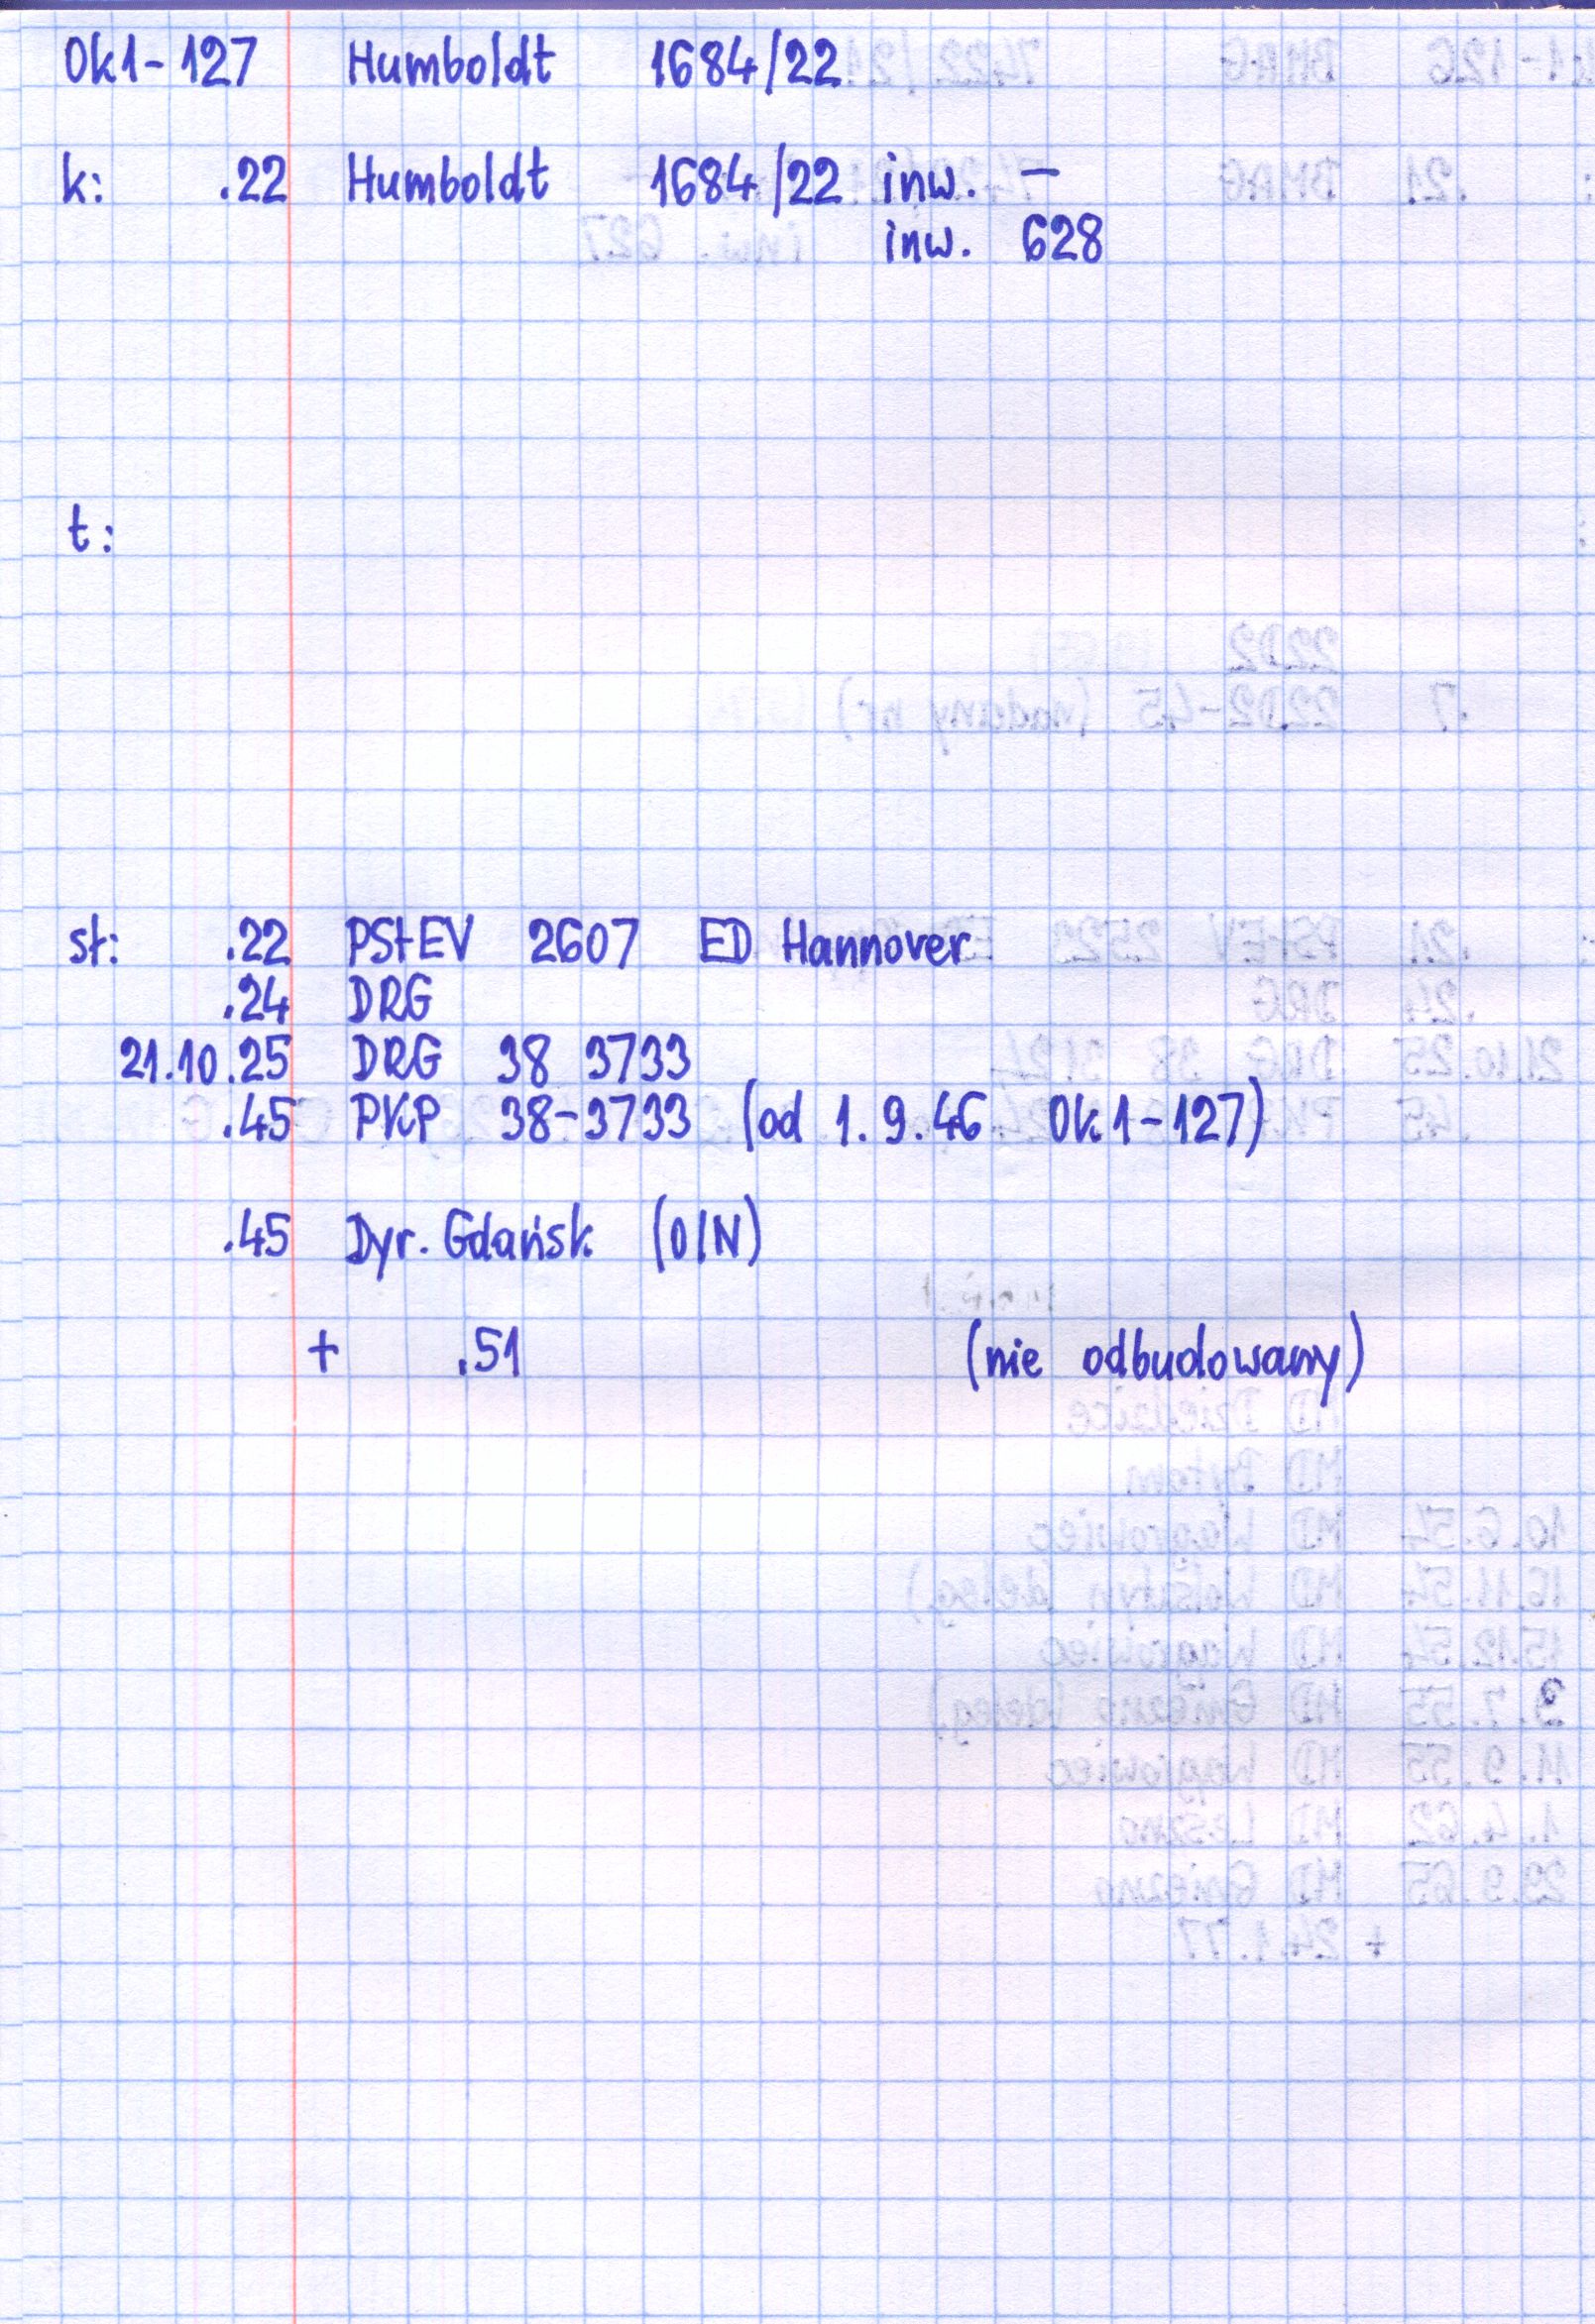 Ok1-127 Humboldt 1684/22
k: .22 Humboldt 1684/22 inw. –
inw. 628
t:
st: .22 PStEV 2607 ED Hannover
.24 DRG
21.10.25 DRG 38 3733
.45 PKP 38-3733 (od 1.9.46 Ok1-127)
.45 Dyr. Gdańsk (OIN)
+ .51 (nie odbudowany)